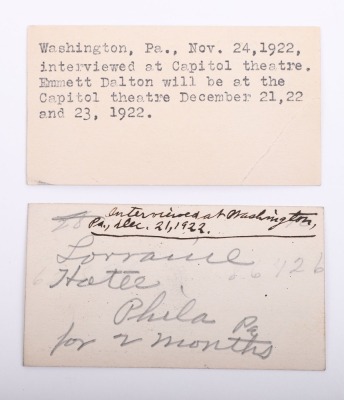 Washington, Pa., Nov. 24,1922,
interviewed at Capitol theatre.
Emmett Dalton will be at the
Capitol theatre December 21,22
and 23, 1922.
Interviewed at Washington,
Pa., Dec. 21, 1922.
Lorraine
Hotel
Phila Pa
for 2 months